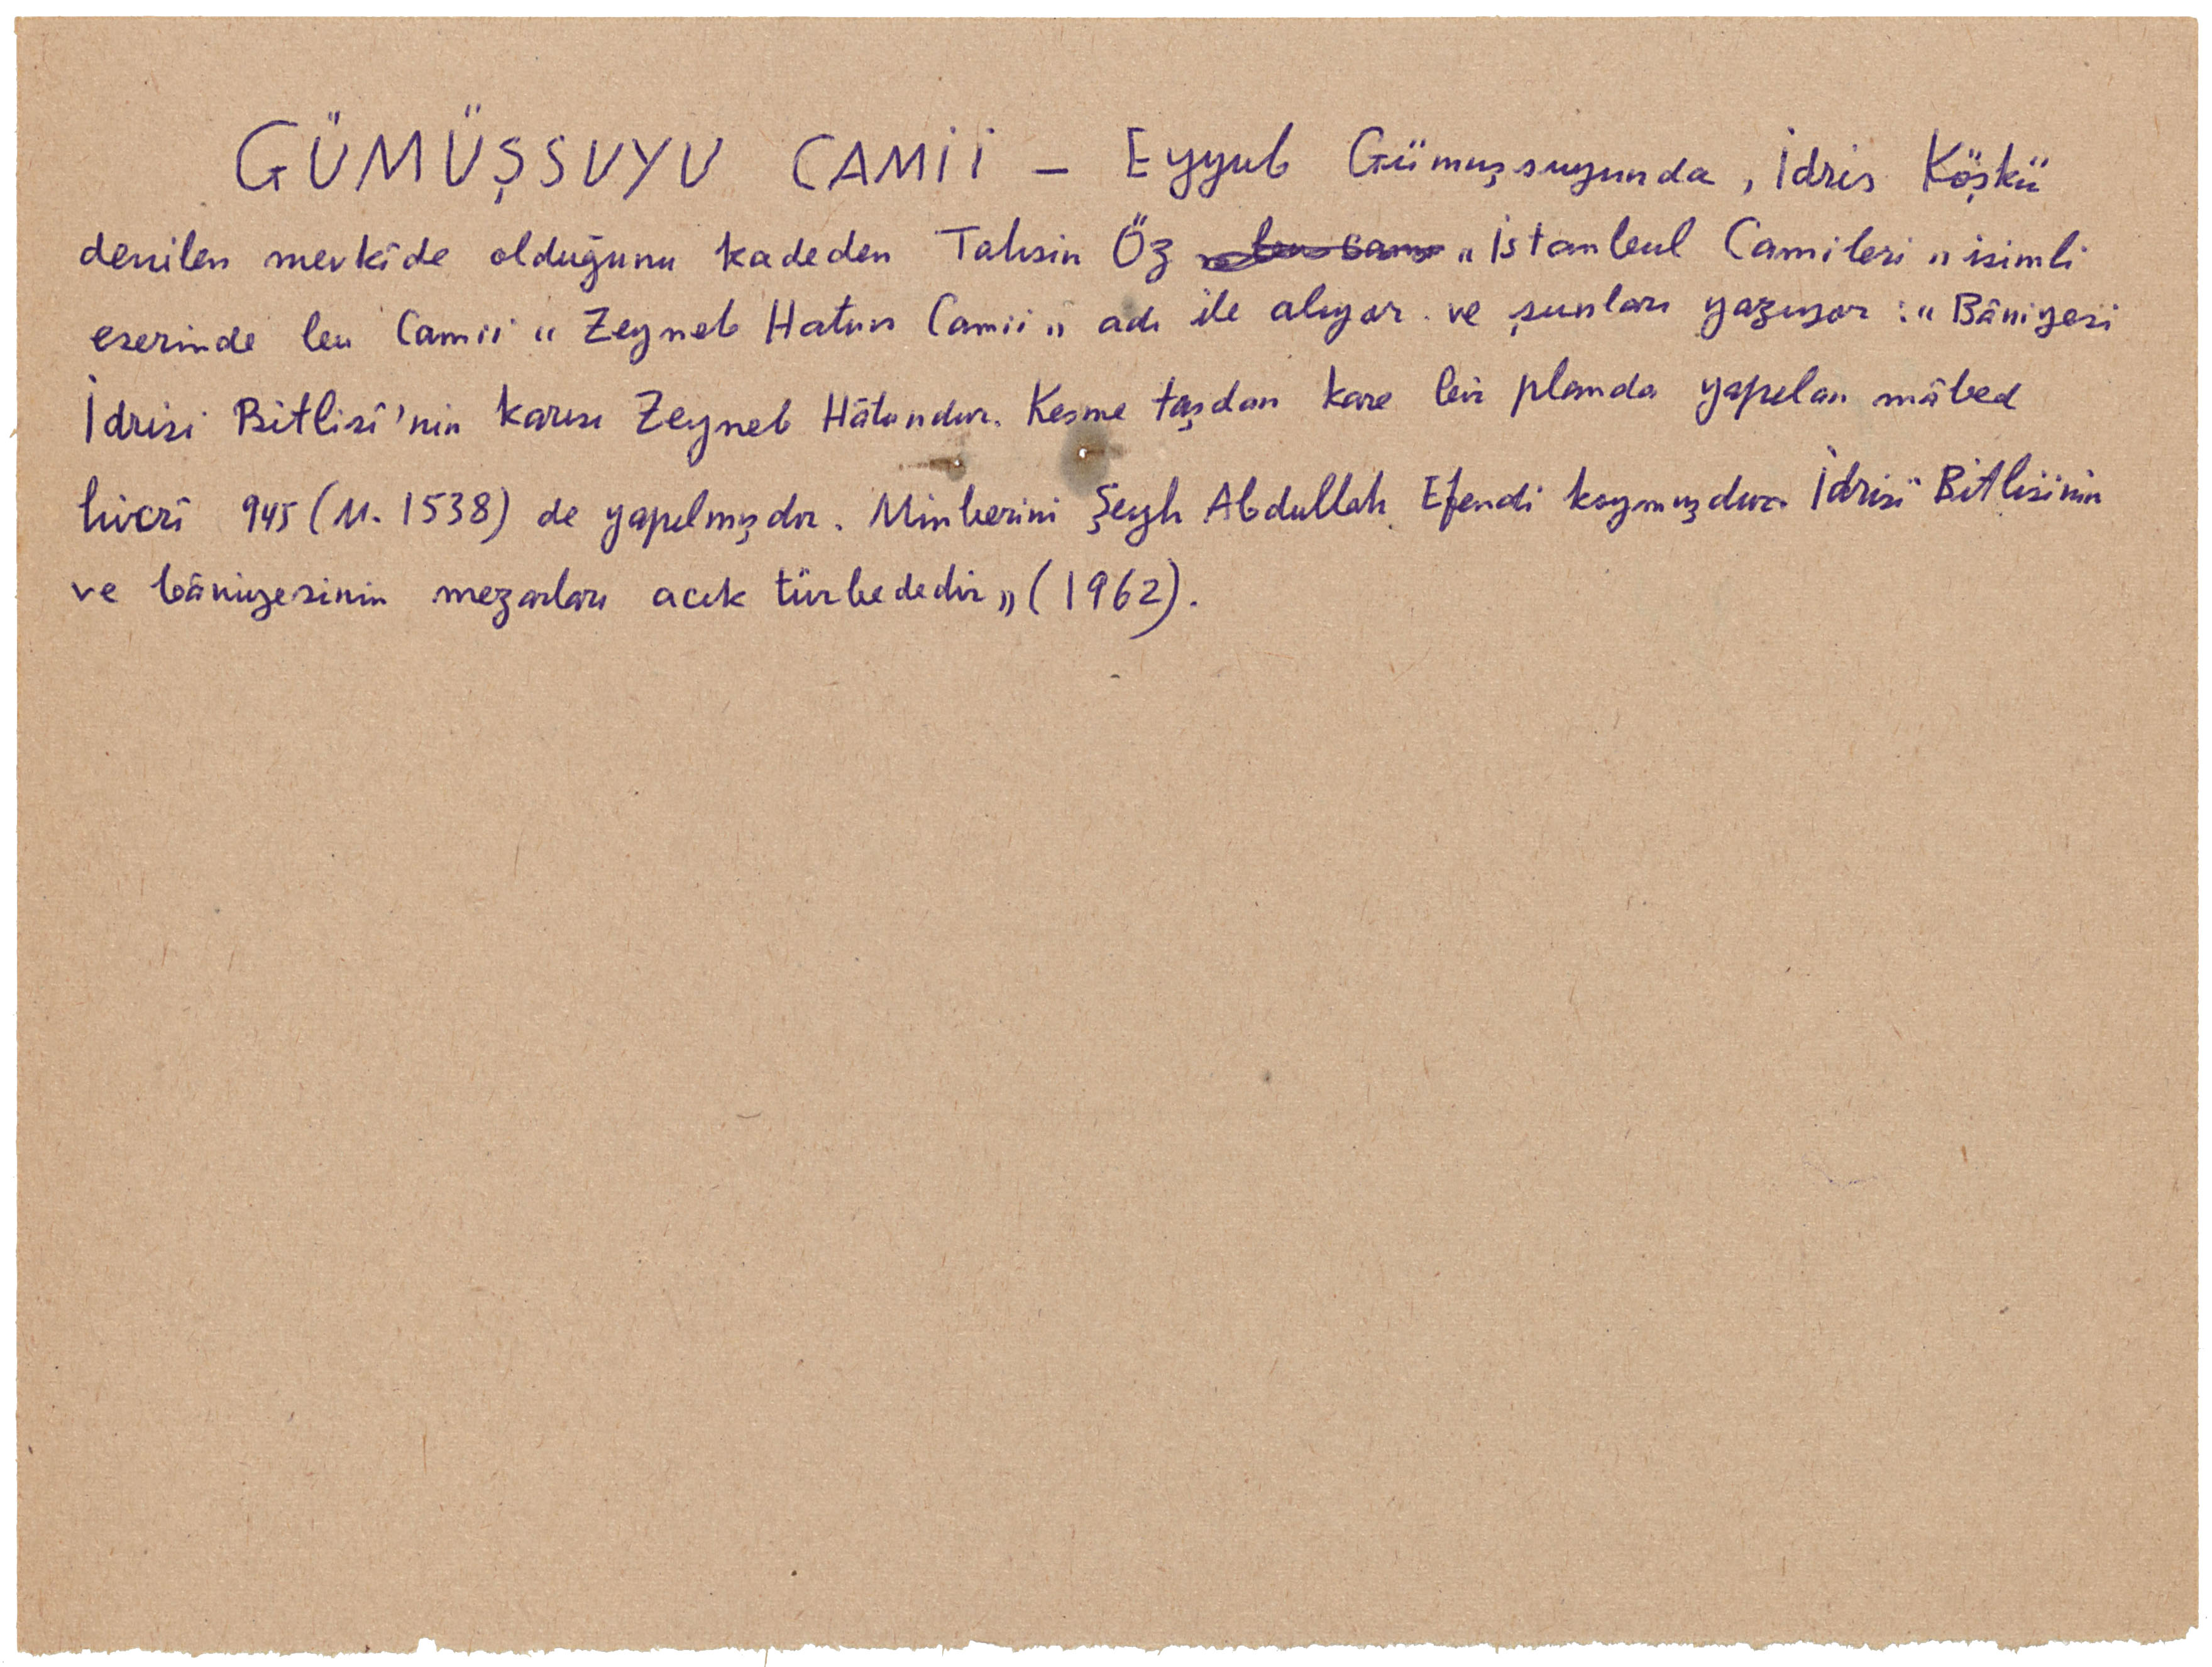 GÜMÜŞSUYU CAMİİ – Eyyub Gümüşsuyunda, İdris Köşkü
denilen mevkide olduğunu kadeden Tahsin Öz "İstanbul Camileri" isimli
eserinde bu Camii "Zeyneb Hatun Camii" adı ile alıyor ve şunları yazıyor: "Bâniyesi
İdrisi Bitlisî'nin karısı Zeyneb Hâtundur. Kesme taşdan kare bir planda yapılan mâbed
hicrî 945 (M. 1538) de yapılmışdır. Minberini Şeyh Abdullah Efendi koymuşdur. İdrisi Bitlisinin
ve bâniyesinin mezarları acık türbededir" (1962).